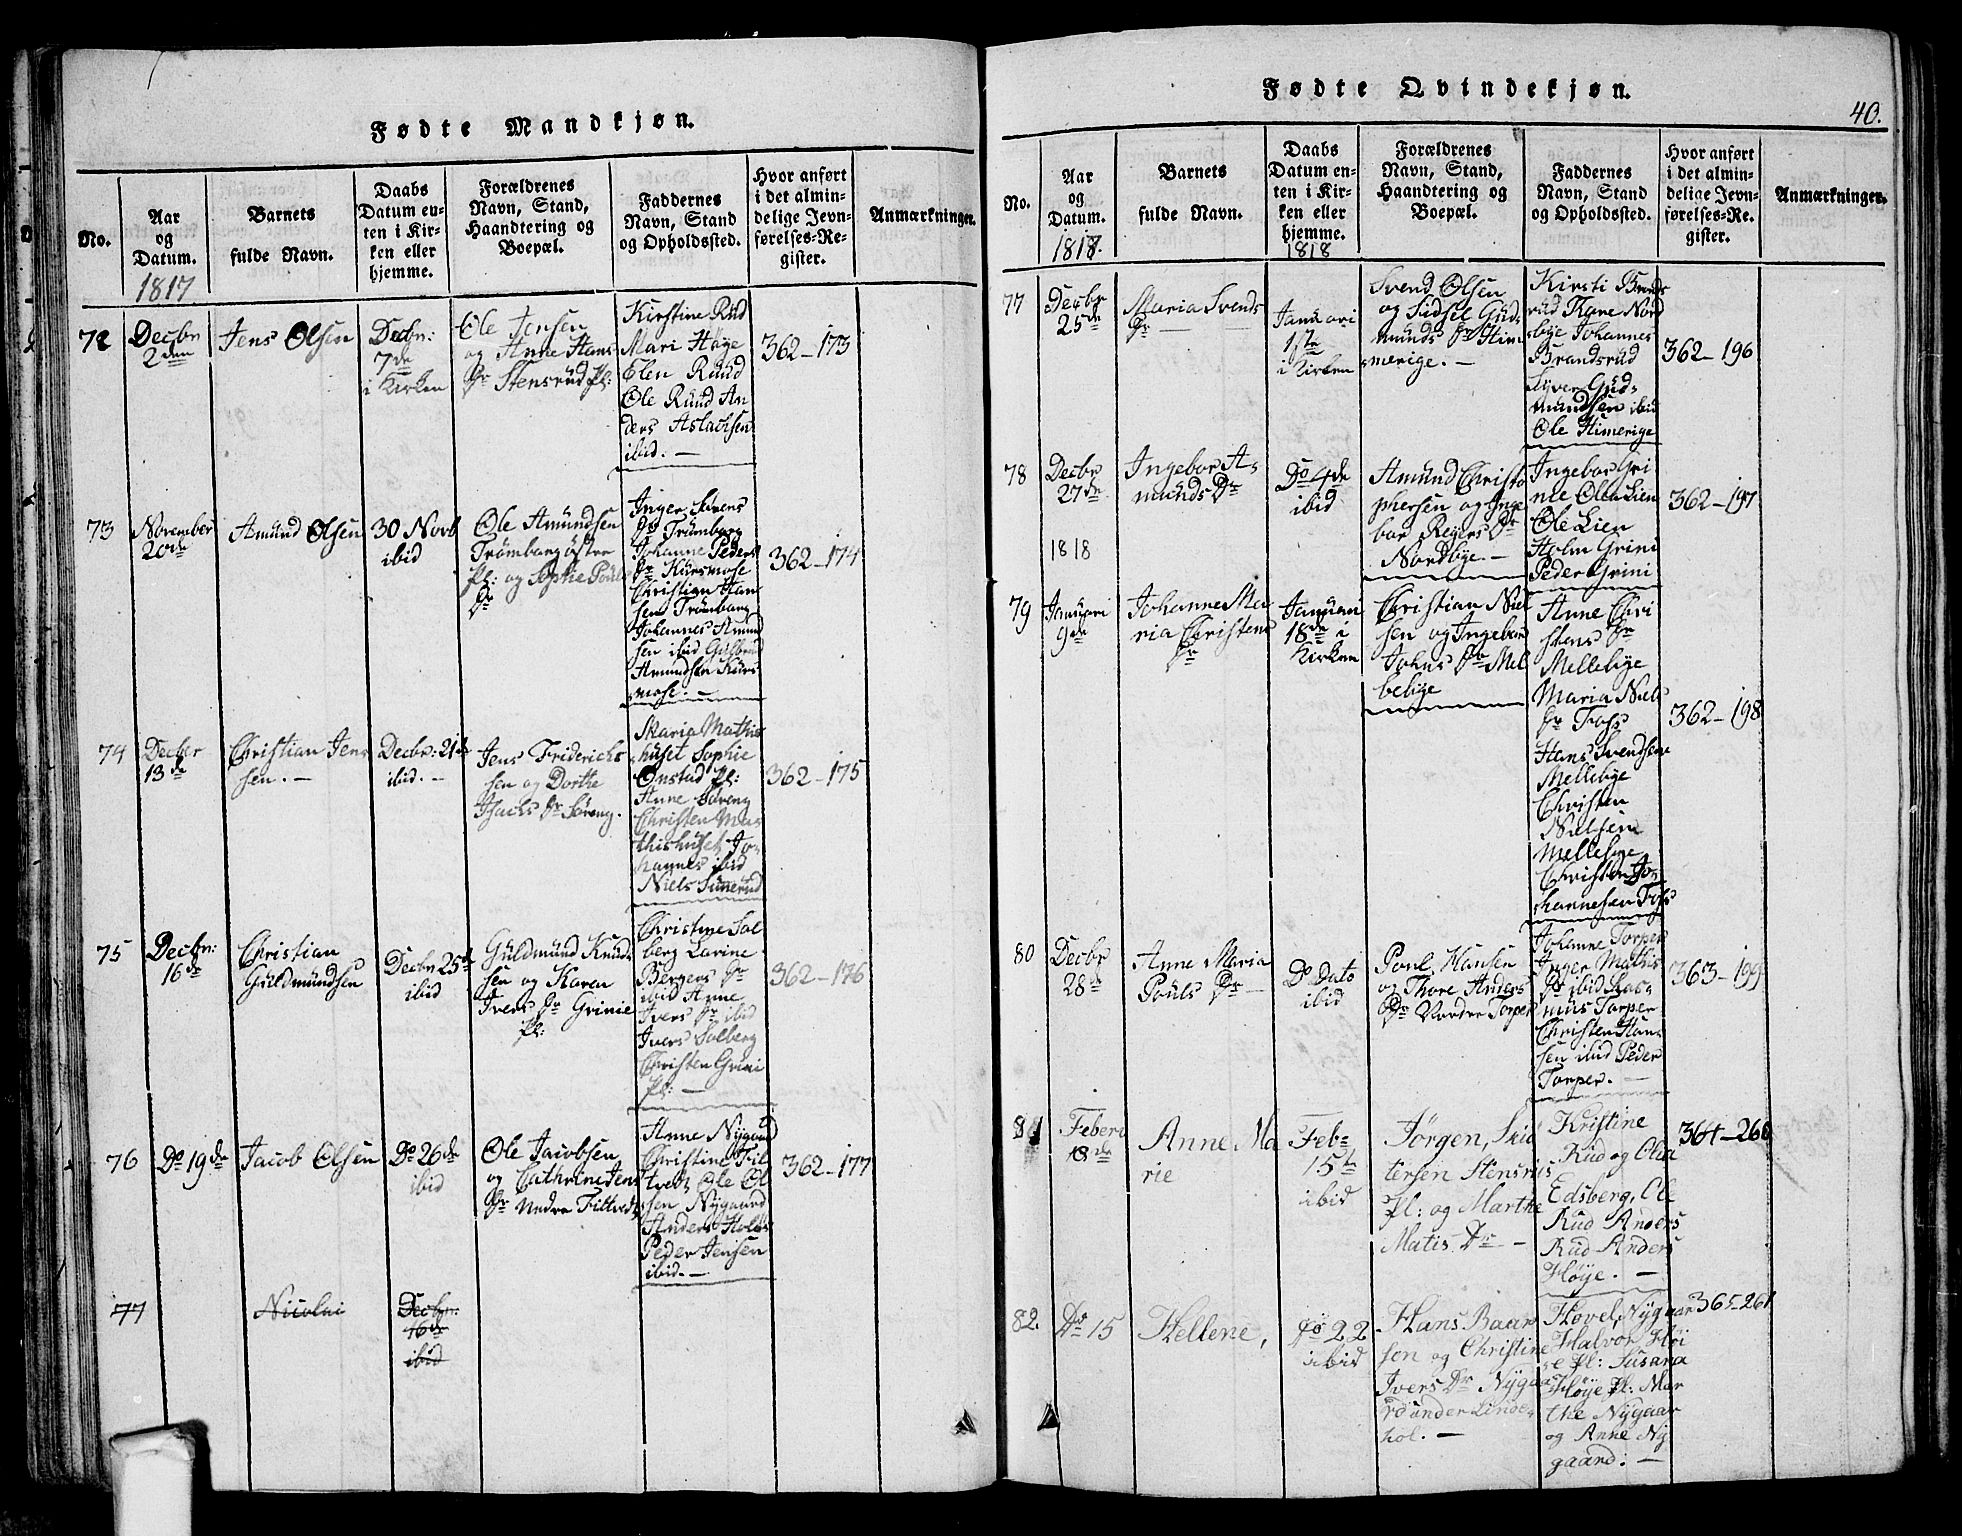 Fødte Mandkjøn.
No.
Aar
og
Datum.
1817
Barnets
fulde Navn.
Daabs
Datum en-
ten i Kir-
ken eller
hjemme.
Forældrenes
Navn, Stand,
Haandtering og
Boepæl.
Faddernes
Navn, Stand
og Opholdssted.
Hvor anført
i det almin-
delige Jevn-
førelses-Re-
gister.
Anmærkninger.
72
Decbr
2den
Jens Olsen
Decbr:
7de
i Kirken
Ole Jensen
og Anne Hans
Dr Stensrud Pl:
Kirstine Rud
Mari Høge
Elen Ruud
Ole Ruud An
ders Aslachsen
ibid. —
362-173
73
November
20de
Amund Olsen
30 Novb
ibid
Ole Amundsen
Trømborg østre
Pl: og Sophie Pouls
Dr
Inger Svens
Dr Trømborg
Johanne Peders
Dr Kursmose
Christian Han
sen Trømborg
Johannes Amund
sen ibid Gulbrand
Amundsen Kurs
mose. —
362-174
74
Decber
13de
Christian Jens
sen. —
Decbr: 21de
ibid. —
Jens Friderichs
sen og Dorthe
Isachs Dr Søreng.
Maria Mathis
huset Sophie
Onstad Pl:
Anne Søreng
Christen Ma
thishuset Jo-
hannes ibid
Niels Sunerud
362-175
75
Decbr:
16de
Christian
Guldmundsen
Decbr 25de
ibid
Guldmund Knud-
sen og Karen
Ivers Dr Grinie
Pl:
Christine Sol
berg Larine
Bergers Dr
ibid Anne
Ivers Dr ibid
Ivers Solberg
Christen Grini
Pl: —
362-176
76
Do 19de
Jacob Olsen
Do 26de
ibid
Ole Jacobsen
og Cathrine Jens
Dr Nedre Filtvedt
Anne Nygaard
Christine Fil
tvedt Ole Ol
sen Nygaard
Anders Holøs
Peder Jensen
ibid. —
362-177
77
Nicolai
Decbr:
16de
ibid
Fødte Qvindekjøn.
40.
No.
Aar
og
Datum.
1817.
Barnets
fulde Navn.
Daabs
Datum en-
ten i Kir-
ken eller
hjemme.
1818
Forældrenes
Navn, Stand,
Haandtering og
Boepæl.
Faddernes
Navn, Stand
og Opholdssted.
Hvor anført
i det almin-
delige Jevn-
førelses-Re-
gister.
Anmærkninger.
77
Decbr
25de
Maria Svends
Dr —
Januari
1ste
i Kirken
Svend Olsen
og Sidsel Gud-
munds Dr Him
merige. —
Kirsti Brands
rud Kare Nord
bye Johannes
Brandsrud
Syver Gud-
mundsen ibid
Ole Himerige
362-196
78
Decbr
27de
Ingebor A-
munds Dr
Do 4de
ibid
Amund Christo
phersen og Inge
bor Reyers Dr
Nordbye. —
Ingebor Gri
nie Olea Lien
Ole Lien
Holm Grini
Peder Grini
362-197
1818
79
Januari
9de
Johanne Ma
ria Christens
Dr
Januari
18de i
Kirken
Christian Niel
sen og Ingebor
Johns Dr Mel
lebye
Anne Chri
stens Dr
Mellebye
Maria Niels
Dr Foss
Hans Svendsen
Mellebye
Christen
Nielsen
Mellebye
Christen Jo-
hannesen Foss
362-198
80
Decbr
28de
Anne Maria
Pouls Dr —
Do Dato
ibid
Poul Hansen
og Thore Anders
Dr Nordre Torper
Johanne Torper
Inger Mathis
Dr ibid Ras-
mus Torper
Christen Han-
sen ibid Peder
Torper. —
363-199
81
Feberu
18de
Anne Ma
rie
Feb-
15t
ibid
Jørgen, Skid
tersen Stensrus
Pl: og Marthe
Matis Dr —
Kristine
Rud og Olea
Edsberg, Ole
Rud Anders
Rud Anders
Høje. —
364-260
82.
Do 15
Hellene,
Do 22
ibid
Hans Baar
sen og Christine
Ivers Dr Nygaa
rd under Linde-
hol. —
Hovel, Nygaar
Halvor Høi
e Pl: Susana
Høye Pl: Mar
the Nygaar
og Anne Ny
gaard. —
365-261